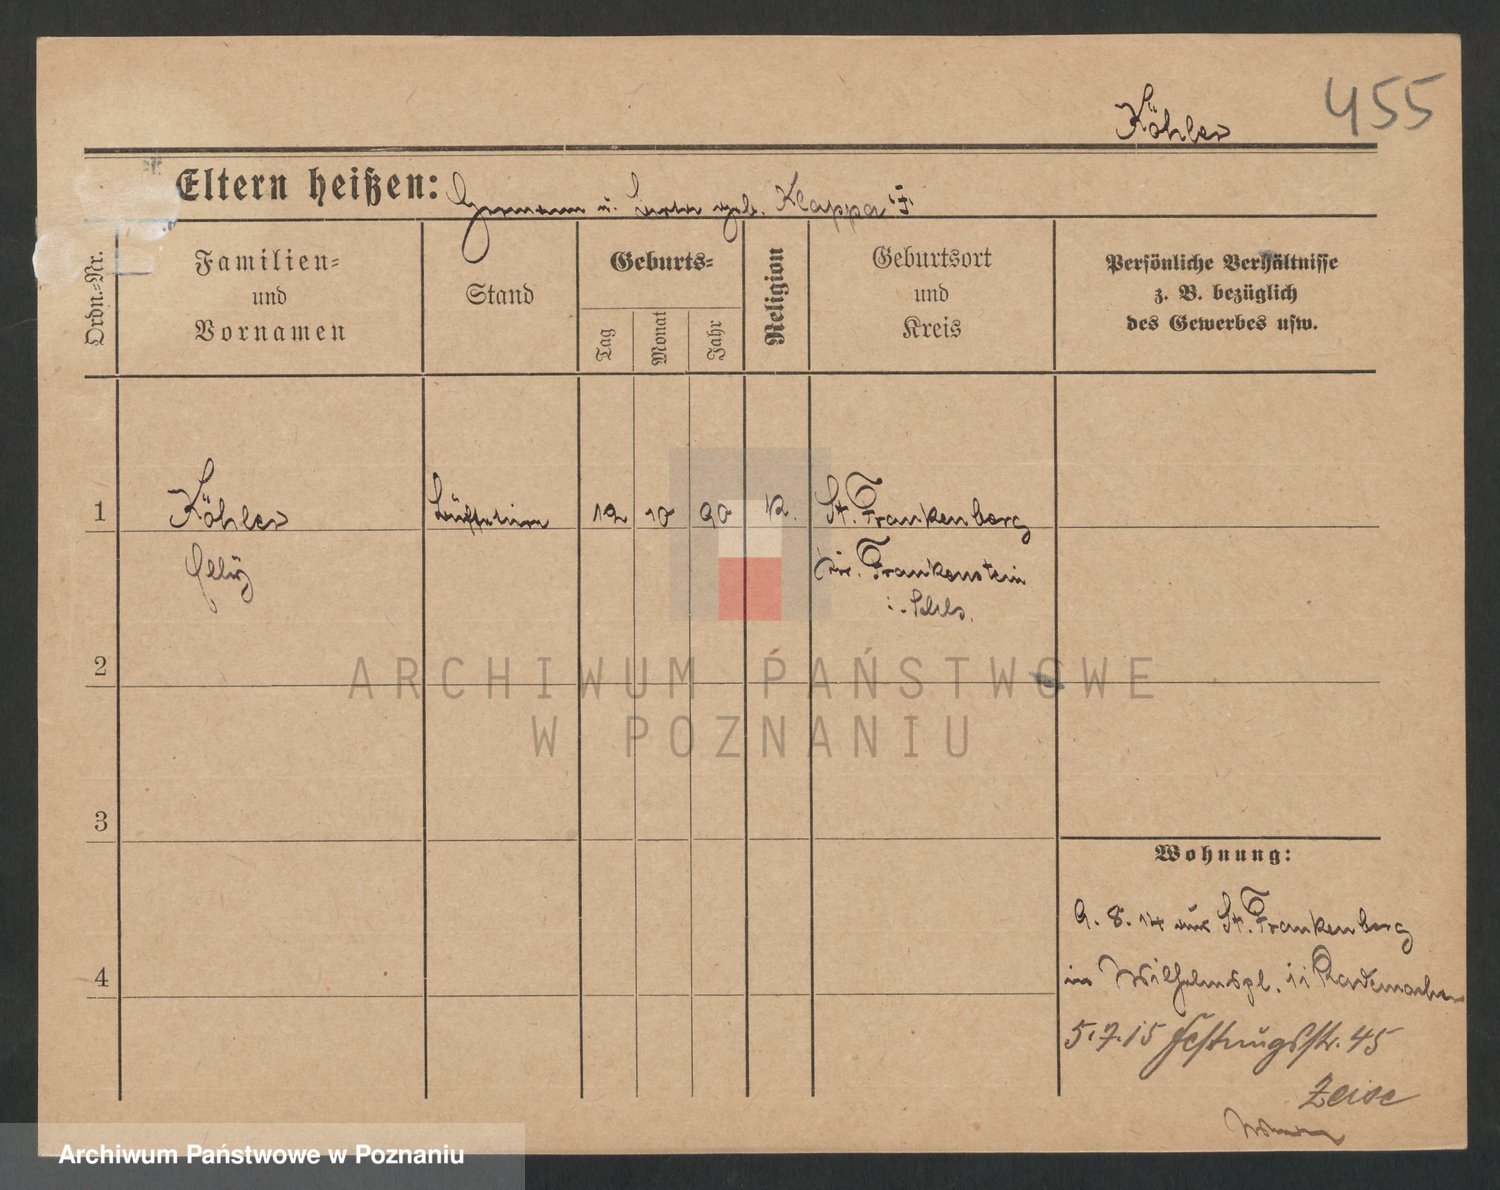 455
Köhler
Eltern heißen: Hermann u. geb. Klappa
Ordn.-Nr.
Familien-
und
Vornamen
Stand
Geburts-
Tag
Monat
Jahr
Religion
Geburtsort
und
Kreis
Persönliche Verhältnisse
z. B. bezüglich
des Gewerbes usw.
1 Köhler 12 10 90 K. St. Frankenberg
Elly Kr. Frankenstein
i. Schls.
2
3
4
Wohnung:
9. 8. 14 aus St. Frankenberg
in Wilhelmspl. 11 Rademacher
5.7.15 Festungsstr. 45
Zeise
ARCHIWUM PAŃSTWOWE
W POZNANIU
Archiwum Państwowe w Poznaniu